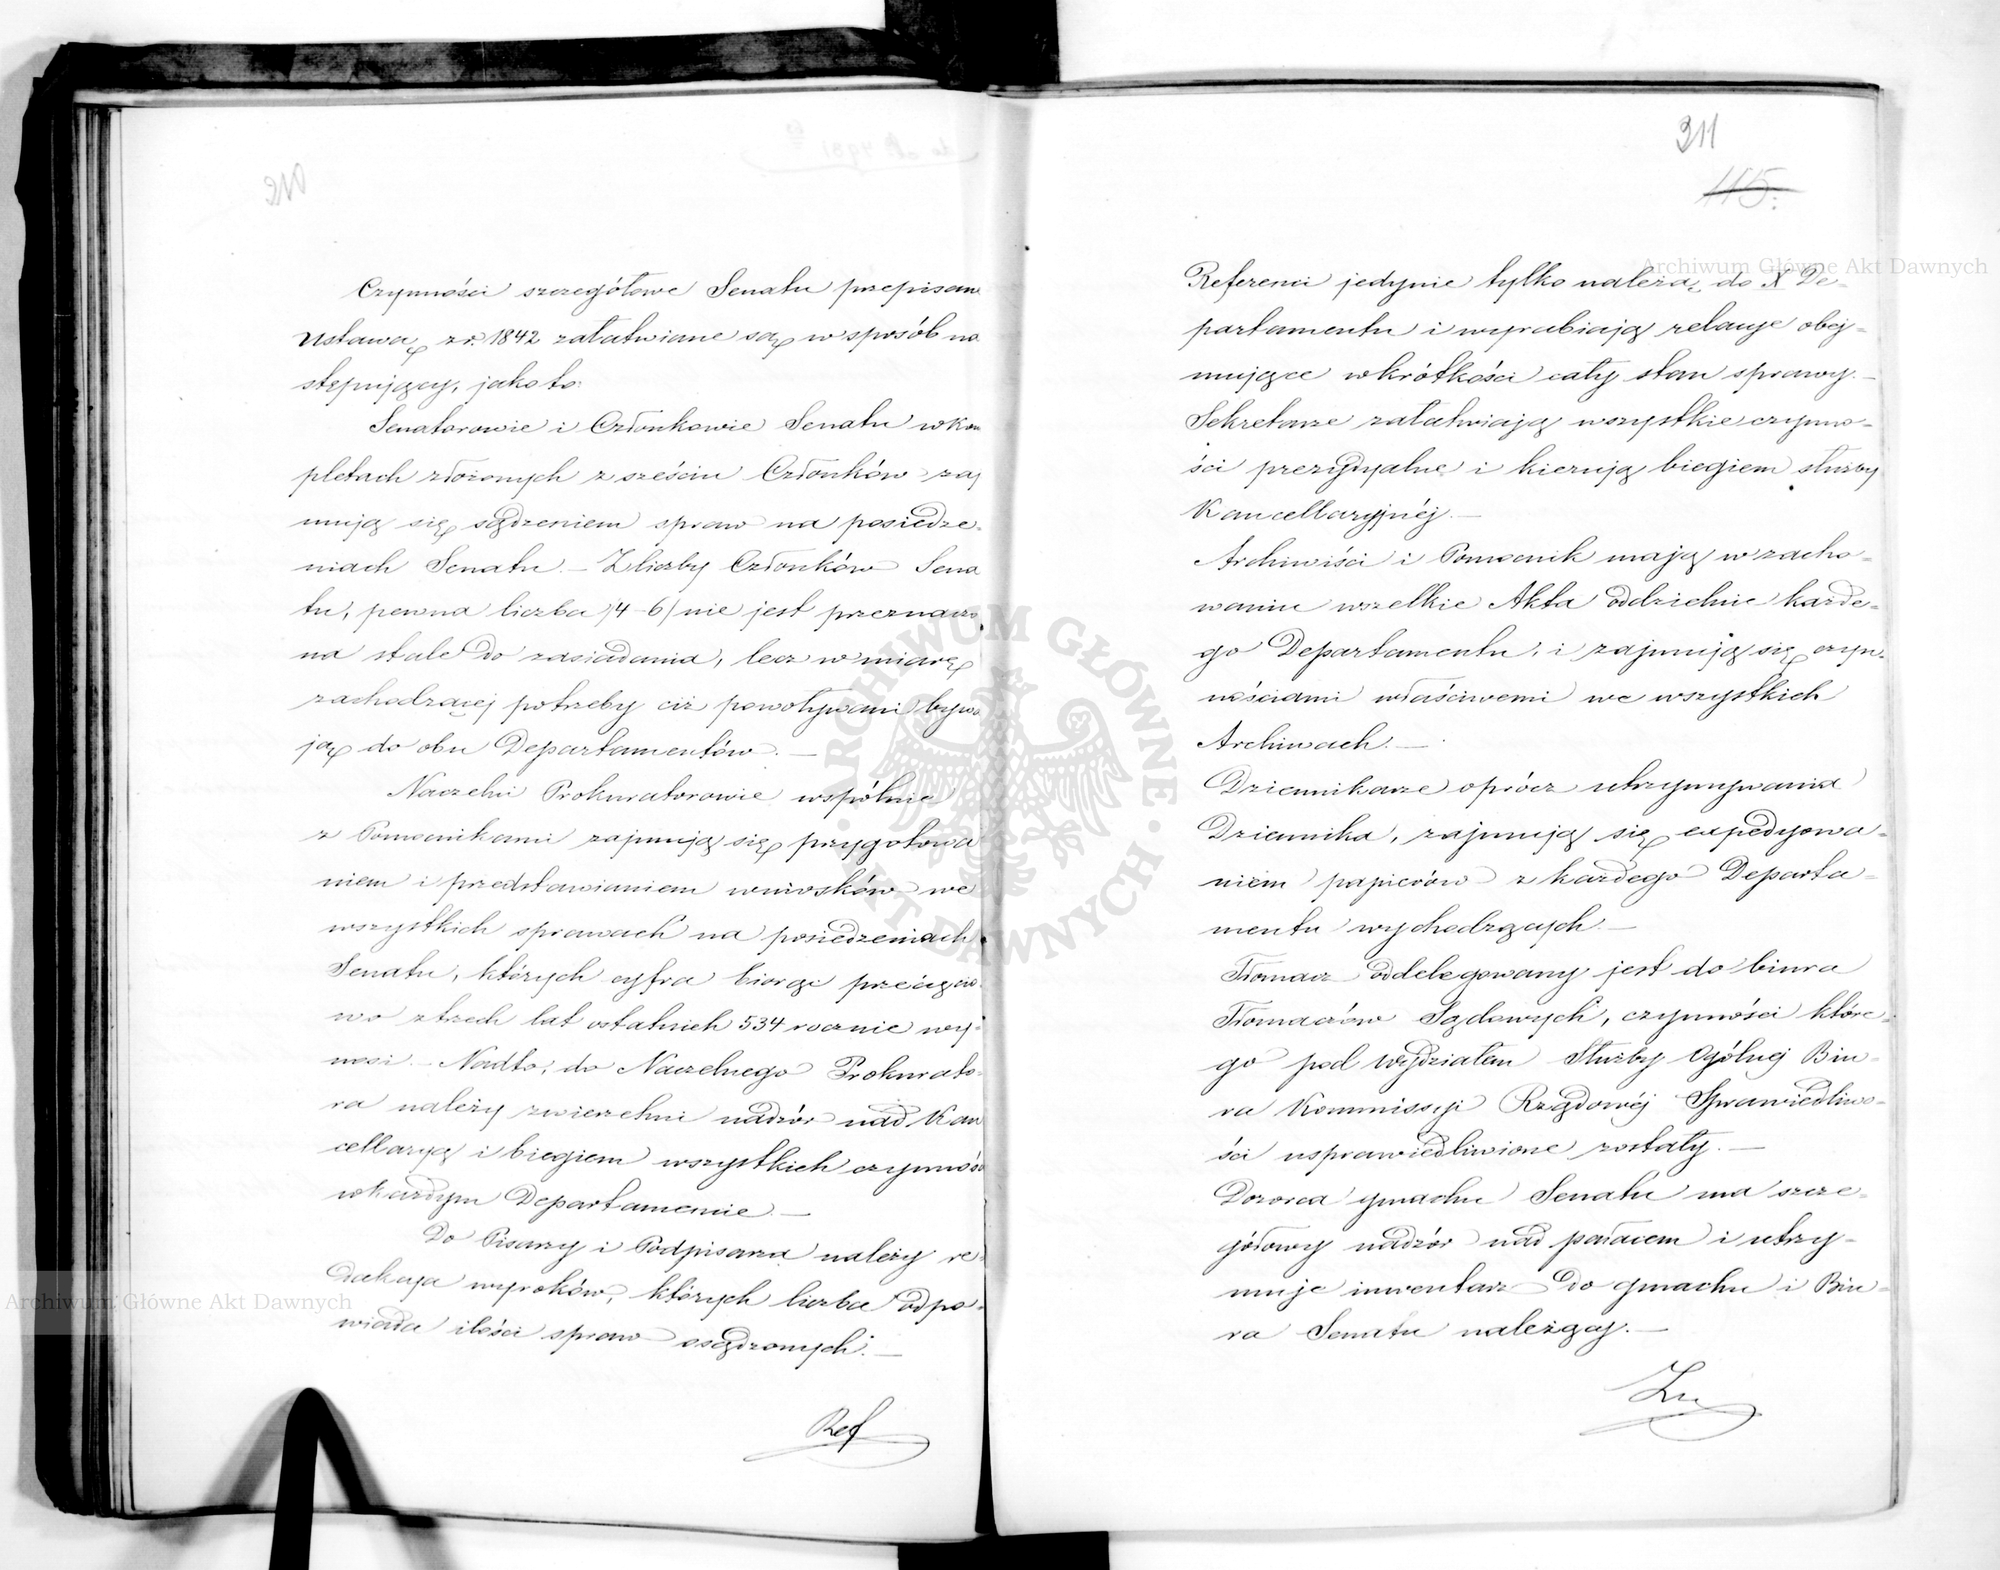 Czynności szczegółowe Senatu przepisane
Ustawą z r. 1842 załatwiane są w sposób na
stępujący, jako to:
Senatorowie i Członkowie Senatu w kom
pletach złożonych z sześciu Członków zaj
mują się sądzeniem spraw na posiedze-
niach Senatu. – Z liczby Członków Sena
tu, pewna liczba /4-6/ nie jest przeznaczo
na stale do zasiadania, lecz w miarę
zachodzącej potrzeby ciż powoływani bywa
ją do obu Departamentów. –
Naczelni Prokuratorowie wspólnie
z Pomocnikami zajmują się przygotowa
niem i przedstawianiem wniosków we
wszystkich sprawach na posiedzeniach
Senatu, których cyfra biorąc przecięcio
wo z trzech lat ostatnich 534 rocznie wy-
nosi. – Nadto, do Naczelnego Prokurato-
ra należy zwierzchni nadzór nad Kan
cellaryą i biegiem wszystkich czynnośc
w każdym Departamencie. –
Do Pisarzy i Podpisarza należy re-
dakcya wyroków, których liczba odpo-
wiada ilości spraw osądzonych. –
Ref
311
115.
Referenci jedynie tylko należą do X De-
partamentu i wyrabiają relacye obej-
mujące w krótkości cały stan sprawy. –
Sekretarze załatwiają wszystkie czynno-
ści prezydyalne i kierują biegiem służby
Kancellaryjnéj. –
Archiwiści i Pomocnik mają w zacho-
waniu wszelkie Akta oddzielnie każde-
go Departamentu, i zajmują się czyn-
nościami właściwemi we wszystkich
Archiwach. –
Dziennikarze oprócz utrzymywania
Dziennika, zajmują się expedyowa-
niem papierów z każdego Departa-
mentu wychodzących. –
Tłomacz oddelegowany jest do biura
Tłomaczów Sądowych, czynności które-
go pod Wydziałem Służby Ogólnej Biu-
ra Kommissyi Rządowéj Sprawiedliwo-
ści usprawiedliwione zostały. –
Dozorca gmachu Senatu ma szcze-
gółowy nadzór nad pałacem i utrzy-
muje inwentarz do gmachu i Biu-
ra Senatu należący. –
Archiwum Główne Akt Dawnych
Archiwum Główne Akt Dawnych
ARCHIWUM GŁÓWNE · AKT DAWNYCH ·